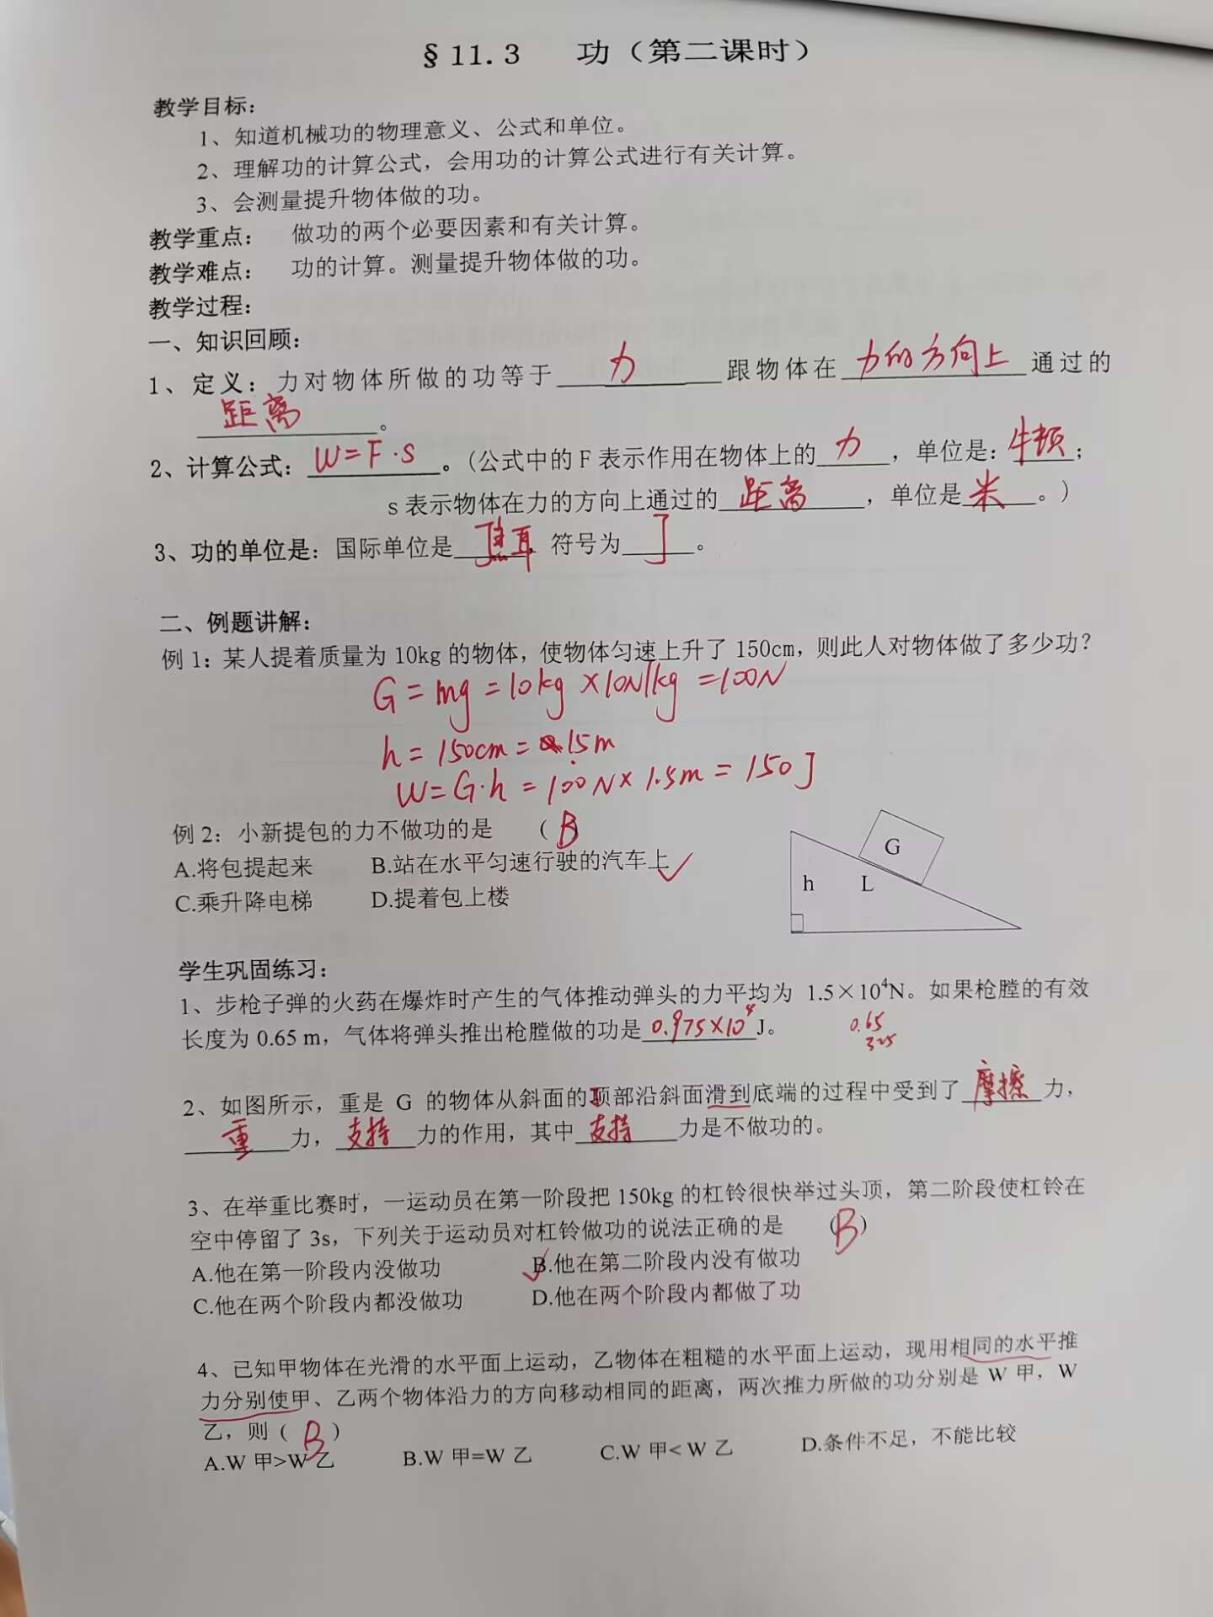 §11.3 功（第二课时）
教学目标：
1、知道机械功的物理意义、公式和单位。
2、理解功的计算公式，会用功的计算公式进行有关计算。
3、会测量提升物体做的功。
教学重点： 做功的两个必要因素和有关计算。
教学难点： 功的计算。测量提升物体做的功。
教学过程：
一、知识回顾：
1、定义：力对物体所做的功等于 力 跟物体在 力的方向上 通过的
距离 。
2、计算公式：W=F·S 。（公式中的 F 表示作用在物体上的 力 ，单位是：牛顿；
s 表示物体在力的方向上通过的 距离 ，单位是 米 。）
3、功的单位是：国际单位是 焦耳 符号为 J 。
二、例题讲解：
例 1：某人提着质量为 10kg 的物体，使物体匀速上升了 150cm，则此人对物体做了多少功？
G=mg=10kg×10N/kg=100N
h=150cm=1.5m
W=G·h=100N×1.5m=150J
例 2：小新提包的力不做功的是 （B）
A.将包提起来 B.站在水平匀速行驶的汽车上✓
C.乘升降电梯 D.提着包上楼
G
h L
学生巩固练习：
1、步枪子弹的火药在爆炸时产生的气体推动弹头的力平均为 1.5×10⁴N。如果枪膛的有效
长度为 0.65 m，气体将弹头推出枪膛做的功是 0.975×10⁴ J。
0.65
325
2、如图所示，重是 G 的物体从斜面的顶部沿斜面滑到底端的过程中受到了 摩擦 力，
重 力， 支持 力的作用，其中 支持 力是不做功的。
3、在举重比赛时，一运动员在第一阶段把 150kg 的杠铃很快举过头顶，第二阶段使杠铃在
空中停留了 3s，下列关于运动员对杠铃做功的说法正确的是 （B）
A.他在第一阶段内没做功 ✓B.他在第二阶段内没有做功
C.他在两个阶段内都没做功 D.他在两个阶段内都做了功
4、已知甲物体在光滑的水平面上运动，乙物体在粗糙的水平面上运动，现用相同的水平推
力分别使甲、乙两个物体沿力的方向移动相同的距离，两次推力所做的功分别是 W 甲，W
乙，则（ B ）
A.W 甲>W 乙 B.W 甲=W 乙 C.W 甲< W 乙 D.条件不足，不能比较